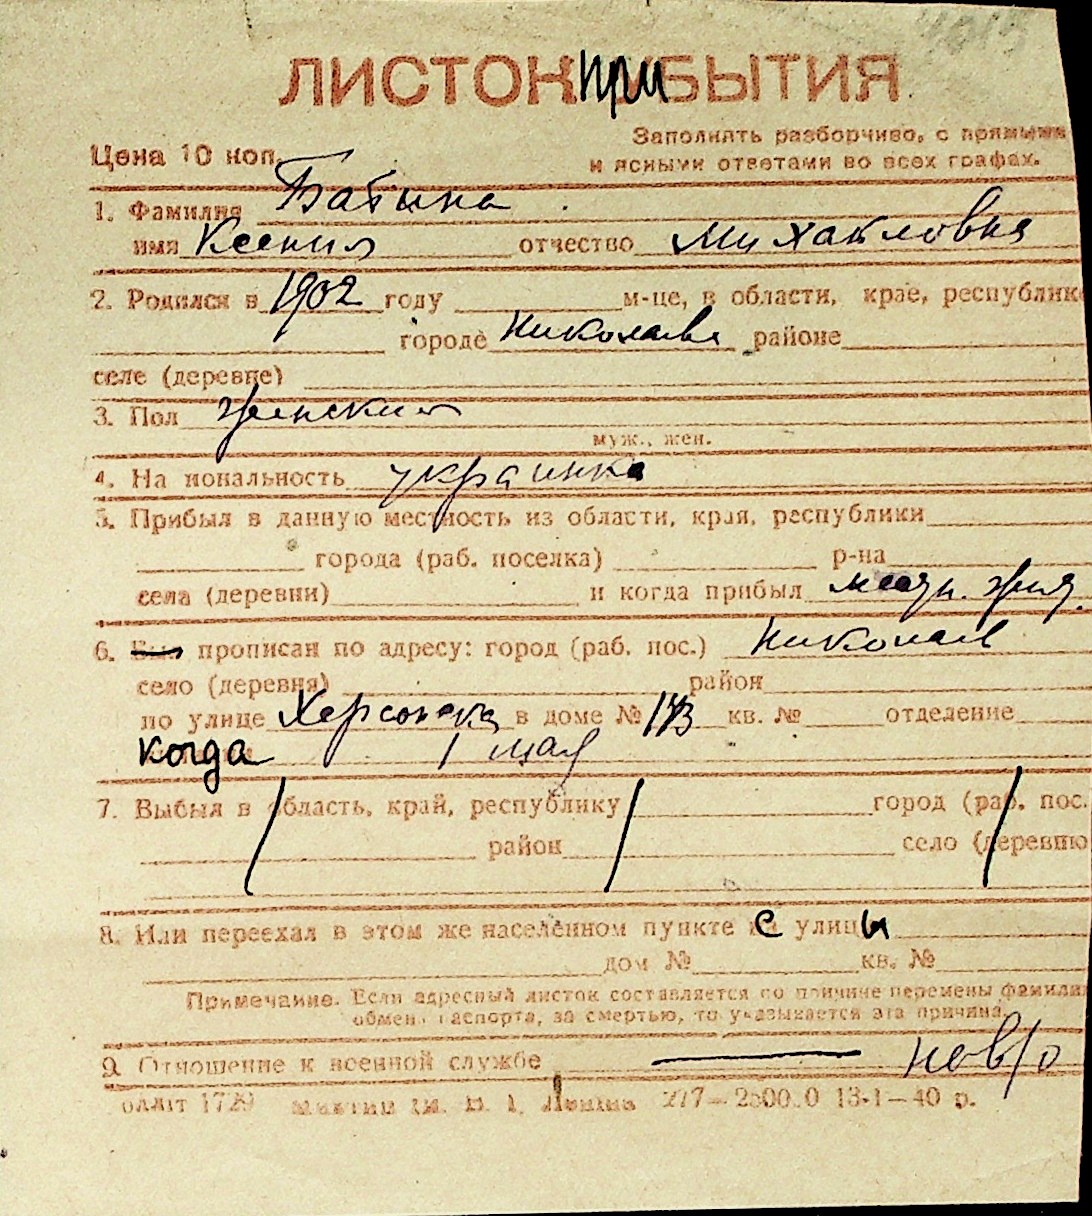 ЛИСТОК приБЫТИЯ
Цена 10 коп.
Заполнять разборчиво, с прямыми
и ясными ответами во всех графах.
1. Фамилия Бабина
имя Ксения отчество Михайловна
2. Родился в 1902 году м-це, в области, крае, республике
городе Николаеве районе
селе (деревне)
3. Пол женский
муж., жен.
4. Национальность украинка
5. Прибыл в данную местность из области, края, республики
города (раб. поселка) р-на
села (деревни) и когда прибыл жит.
6. Был прописан по адресу: город (раб. пос.) Николаев
село (деревня) район
по улице Херсонская в доме № 173 кв. № отделение
когда 1 мая
7. Выбыл в область, край, республику город (раб. пос.
район село (деревню
8. Или переехал в этом же населенном пункте с улицы
дом № кв. №
Примечание. Если адресный листок составляется по причине перемены фамилии
обмена паспорта, за смертью, то указывается эта причина.
9. Отношение к военной службе — нов/о
1729 Ленина 277— 13-1—40 р.